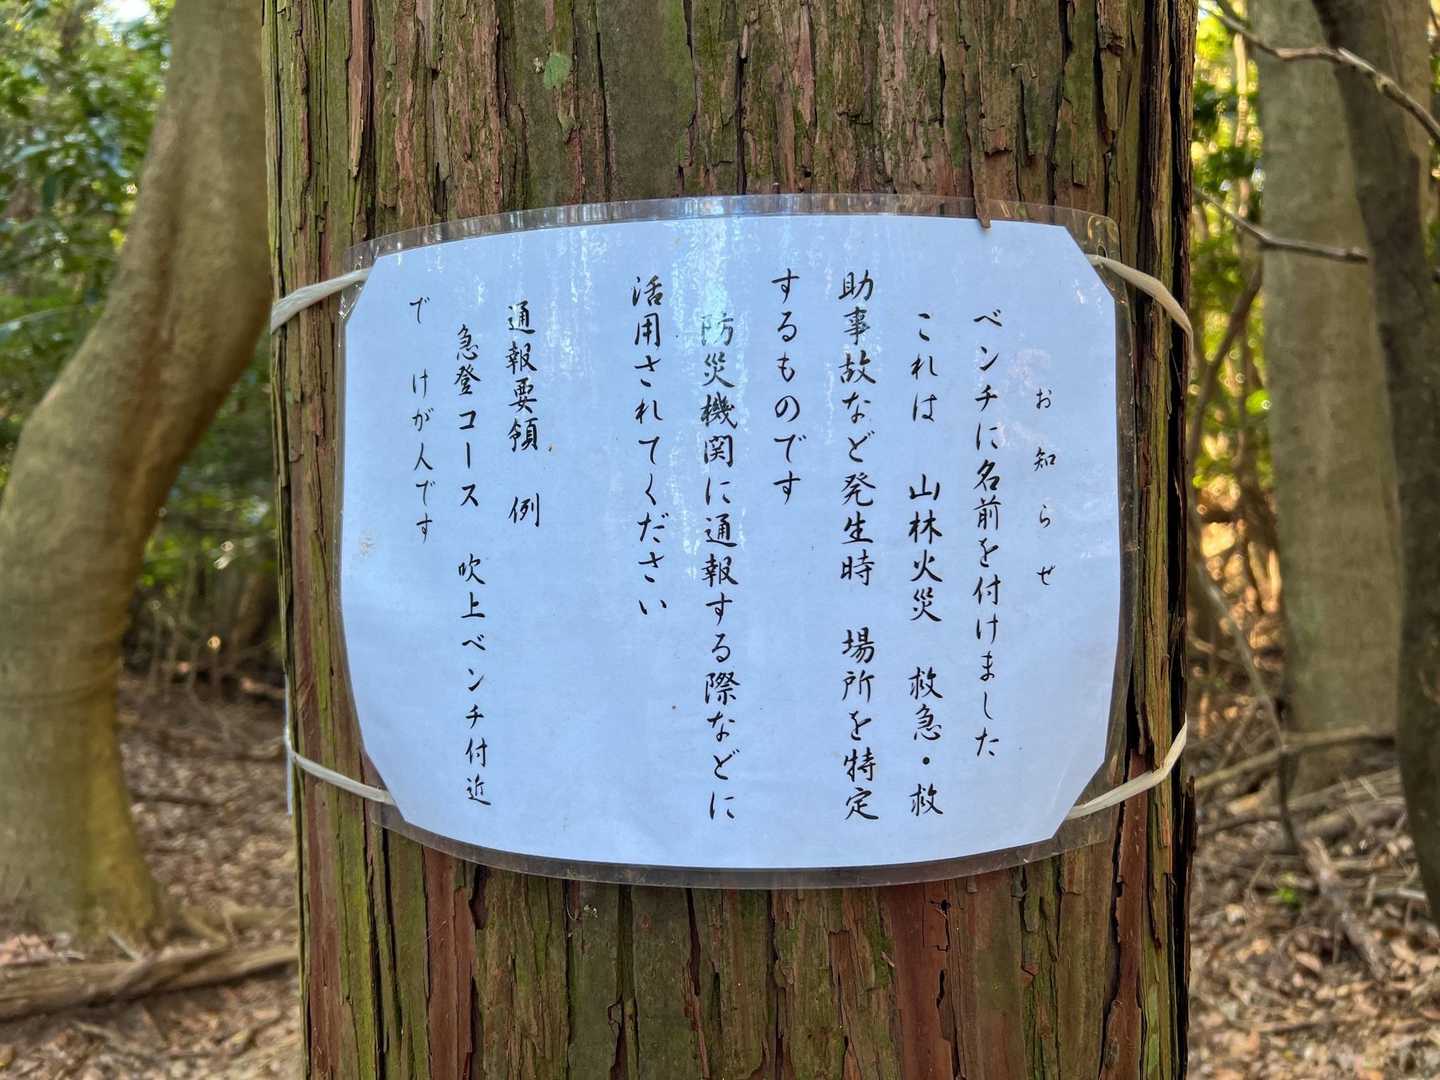 お知らせ
ベンチに名前を付けました
これは 山林火災 救急・救
助事故など発生時 場所を特定
するものです
防災機関に通報する際などに
活用されてください
通報要領 例
急登コース 吹上ベンチ付近
で けが人です